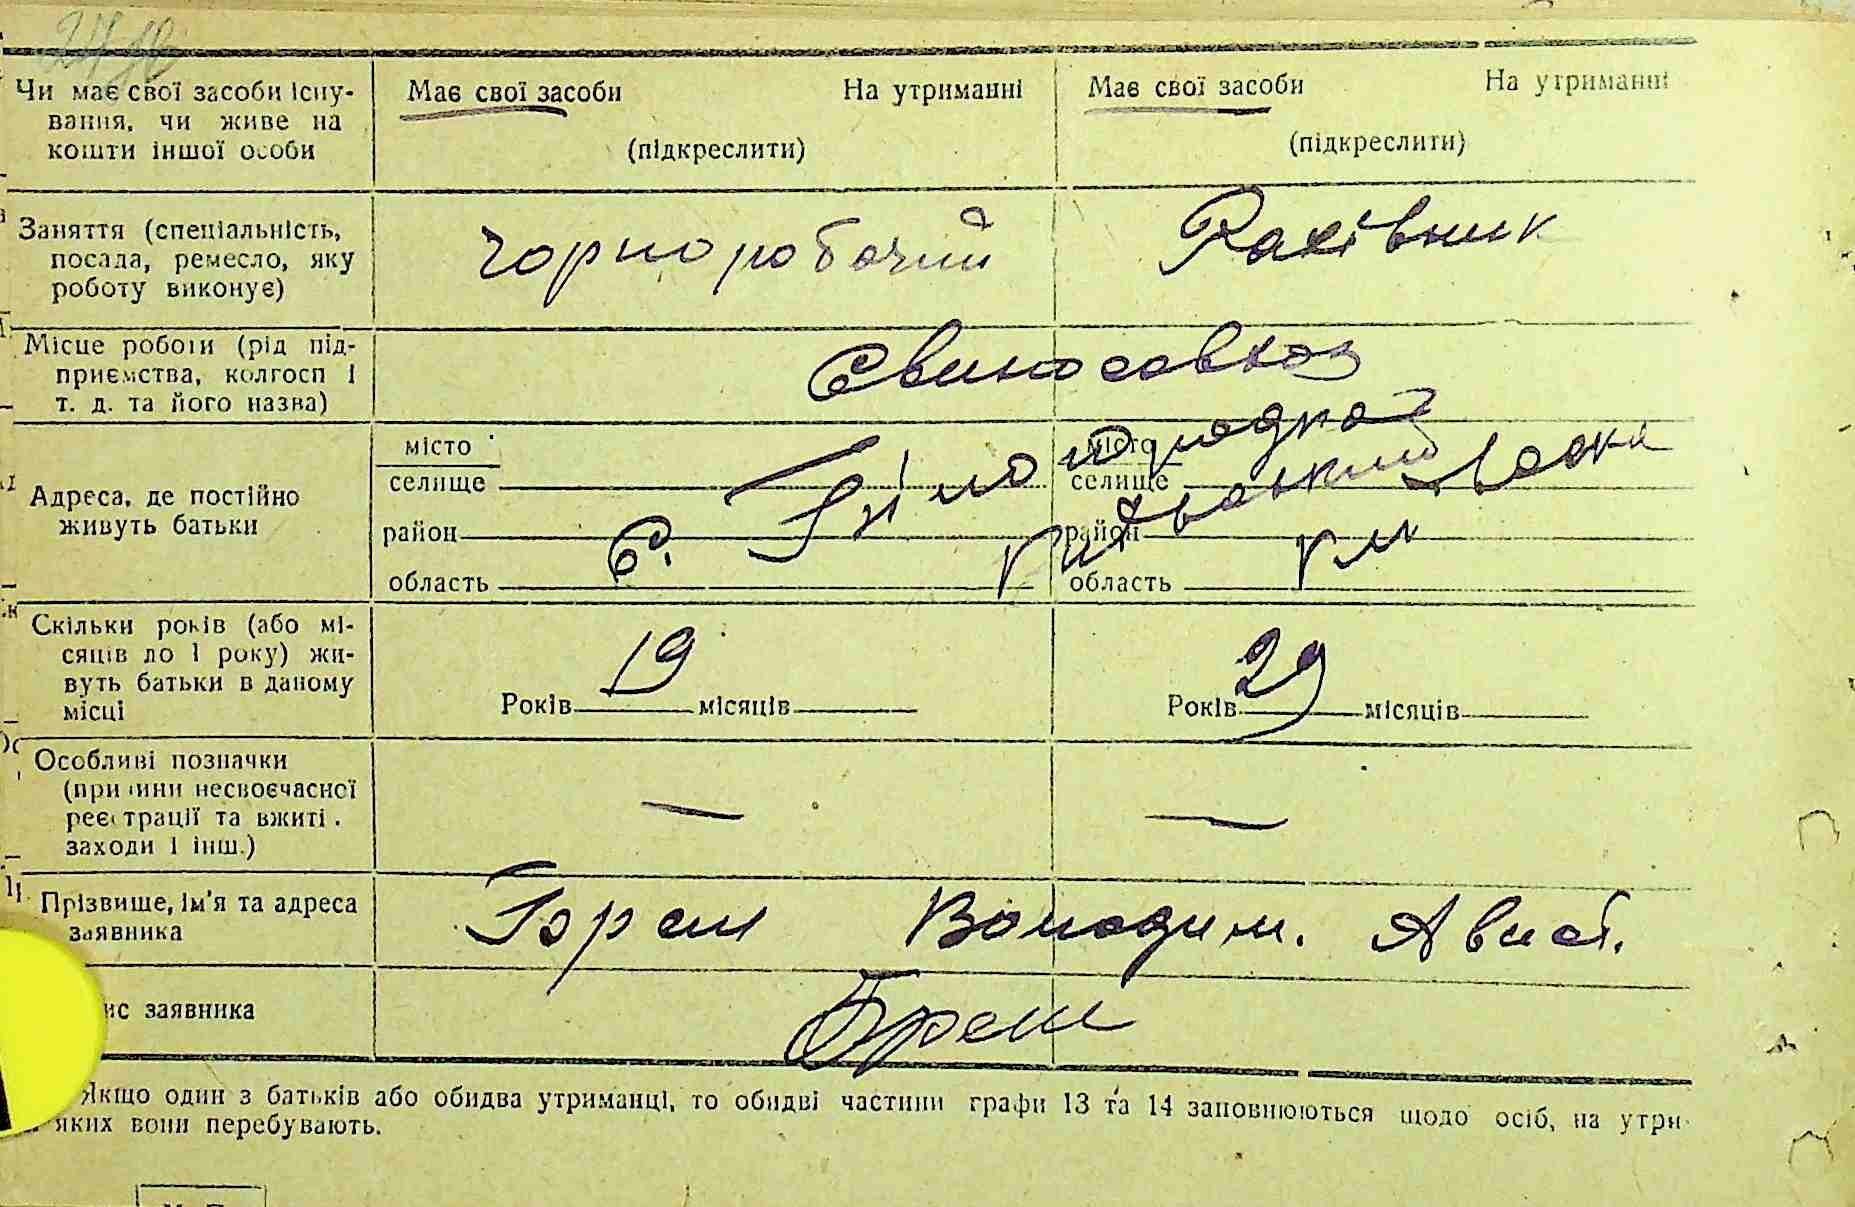 Чи має свої засоби існу-
вання, чи живе на
кошти іншої особи
Має свої засоби На утриманні
(підкреслити)
Має свої засоби На утриманні
(підкреслити)
Заняття (спеціальність,
посада, ремесло, яку
роботу виконує)
чорноробочий
Рахівник
Місце роботи (рід під-
приємства, колгосп і
т. д. та його назва)
Свинорадгосп
Адреса, де постійно
живуть батьки
місто
селище
район
область
місто
селище
район
область
с.
Скільки років (або мі-
сяців до 1 року) жи-
вуть батьки в даному
місці
Років 19 місяців
Років 29 місяців
Особливі позначки
(причини несвоєчасної
реєстрації та вжиті
заходи і інш.)
—
—
Прізвище, ім'я та адреса
заявника
Володим.
ис заявника
Якщо один з батьків або обидва утриманці, то обидві частини графи 13 та 14 заповнюються щодо осіб, на утри-
яких вони перебувають.